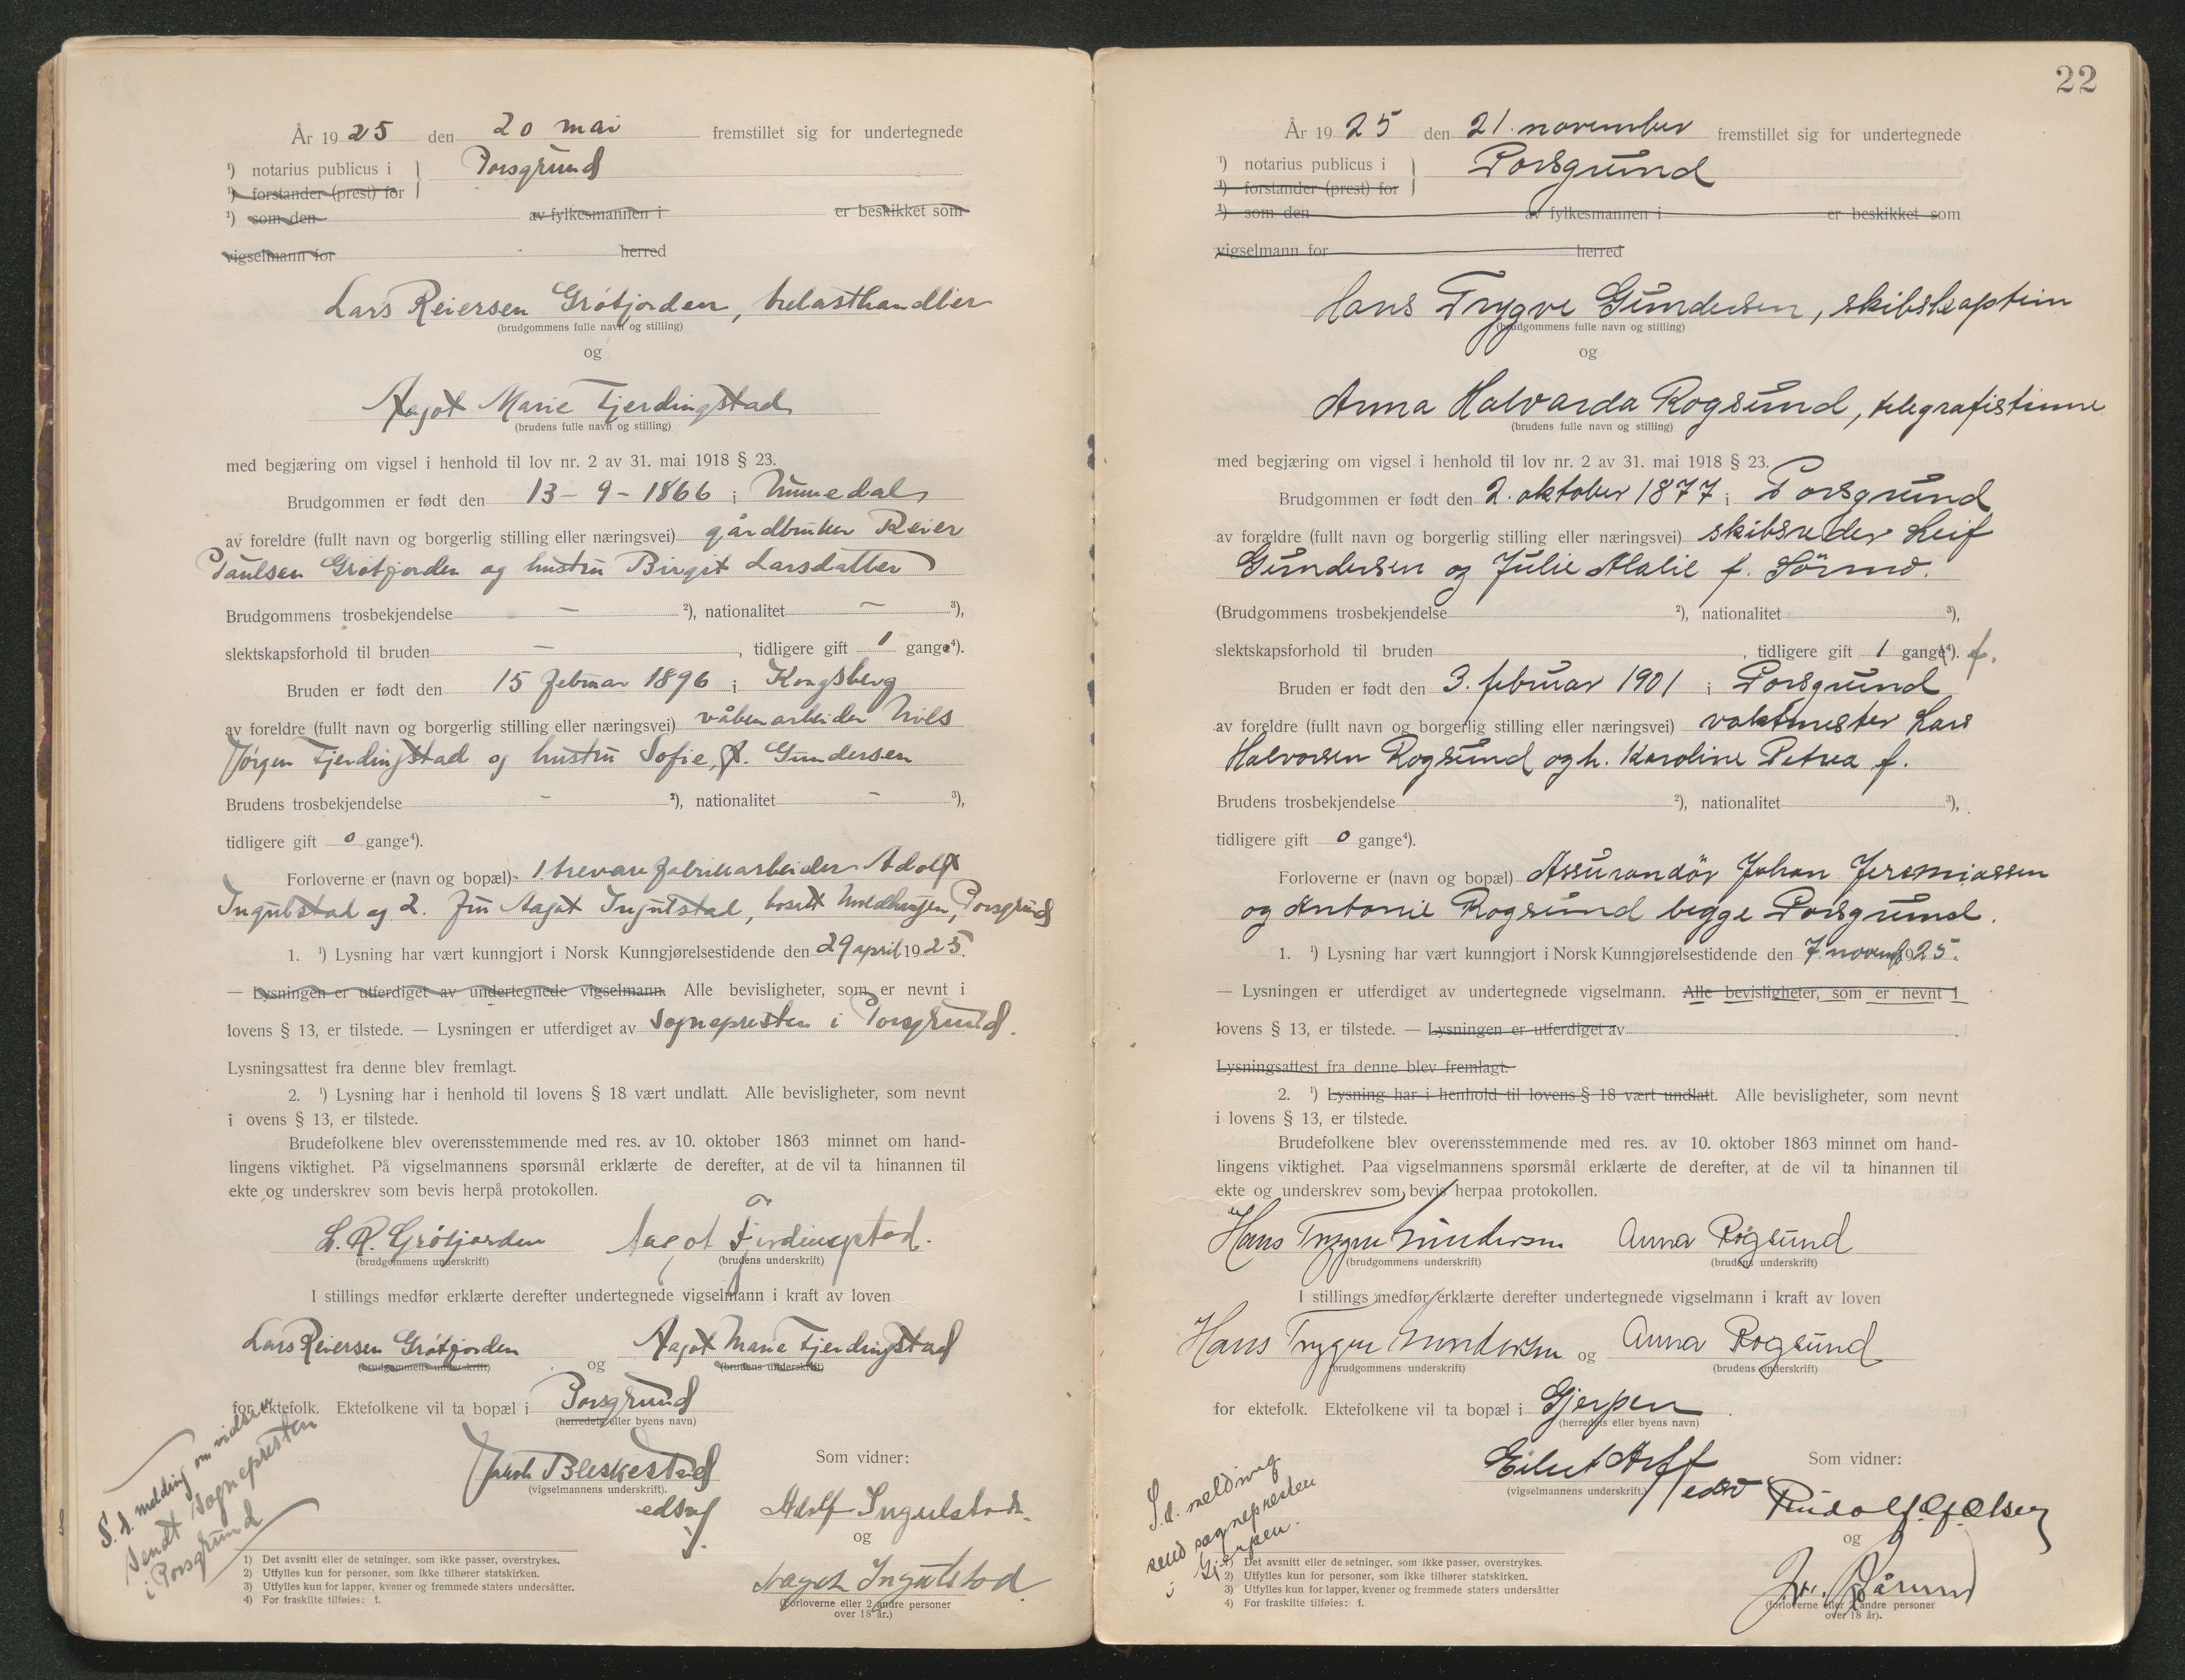 År 19 25 den 20 mai fremstillet sig for undertegnede
¹) notarius publicus i } Porsgrund
¹) forstander (prest) for
¹) som den av fylkesmannen i er beskikket som
vigselmann for herred
Lars Reiersen Grötjorden, trelasthandler
(brudgommens fulle navn og stilling)
og
Aagot Marie Fjerdingstad
(brudens fulle navn og stilling)
med begjæring om vigsel i henhold til lov nr. 2 av 31. mai 1918 § 23.
Brudgommen er født den 13-9-1866 i Numedal
av foreldre (fullt navn og borgerlig stilling eller næringsvei) gårdbruker Reier
Paulsen Grötjorden og hustru Birgit Larsdatter
Brudgommens trosbekjendelse — ²), nationalitet — ³),
slektskapsforhold til bruden — , tidligere gift 1 gange⁴).
Bruden er født den 15 februar 1896 i Kongsberg
av foreldre (fullt navn og borgerlig stilling eller næringsvei) våbenarbeider Nils
Jørgen Fjerdingstad og hustru Sofie, f. Gundersen
Brudens trosbekjendelse - ²), nationalitet - ³),
tidligere gift 0 gange⁴).
Forloverne er (navn og bopæl) 1 trevarefabrikarbeider Adolf
Ingulstad og 2. fru Aagot Ingulstad, bosatt Porsgrund
1. ¹) Lysning har vært kunngjort i Norsk Kunngjørelsestidende den 29 april 1925.
— Lysningen er utferdiget av undertegnede vigselmann. Alle bevisligheter, som er nevnt i
lovens § 13, er tilstede. — Lysningen er utferdiget av Sognepresten i Porsgrund.
Lysningsattest fra denne blev fremlagt.
2. ¹) Lysning har i henhold til lovens § 18 vært undlatt. Alle bevisligheter, som nevnt
i ovens § 13, er tilstede.
Brudefolkene blev overensstemmende med res. av 10. oktober 1863 minnet om hand-
lingens viktighet. På vigselmannens spørsmål erklærte de derefter, at de vil ta hinannen til
ekte og underskrev som bevis herpå protokollen.
L. R. Grötjorden Aagot Fjerdingstad.
(brudgommens underskrift) (brudens underskrift)
I stillings medfør erklærte derefter undertegnede vigselmann i kraft av loven
Lars Reiersen Grötjorden og Aagot Marie Fjerdingstad
(brudgommens underskrift) (brudens underskrift)
for ektefolk. Ektefolkene vil ta bopæl i Porsgrund
(herredets eller byens navn)
Jakob Bleskestad Som vidner:
(vigselmannens underskrift).
edsvf Adolf Ingulstad.
og
Aagot Ingulstad
(forloverne eller 2 andre personer
over 18 år.)
S. d. melding om vielsen
sendt sognepresten
i Porsgrund
1) Det avsnitt eller de setninger, som ikke passer, overstrykes.
2) Utfylles kun for personer, som ikke tilhører statskirken.
3) Utfylles kun for lapper, kvener og fremmede staters undersåtter.
4) For fraskilte tilføies: f.
22
År 19 25 den 21. november fremstillet sig for undertegnede
¹) notarius publicus i } Porsgrund
¹) forstander (prest) for
¹) som den av fylkesmannen i er beskikket som
vigselmann for herred
Hans Trygve Gundersen, skibskaptein
(brudgommens fulle navn og stilling)
og
Anna Halvarda Rogsund, telegrafistinne
(brudens fulle navn og stilling)
med begjæring om vigsel i henhold til lov nr. 2 av 31. mai 1918 § 23.
Brudgommen er født den 2. oktober 1877 i Porsgrund
av forældre (fullt navn og borgerlig stilling eller næringsvei) skibsreder Leif
Gundersen og Julie Alalie f.
(Brudgommens trosbekjendelse ²), nationalitet ³),
slektskapsforhold til bruden , tidligere gift 1 gange⁴). f.
Bruden er født den 3. februar 1901 i Porsgrund
av foreldre (fullt navn og borgerlig stilling eller næringsvei) vaktmester Lars
Halvorsen Rogsund og h. Karoline Petrea f.
Brudens trosbekjendelse ²), nationalitet ³),
tidligere gift 0 gange⁴).
Forloverne er (navn og bopæl) Assurandör Johan Jeremiassen
og Antonie Rogsund begge Porsgrund.
1. ¹) Lysning har vært kunngjort i Norsk Kunngjørelsestidende den 7. novemb 1925.
— Lysningen er utferdiget av undertegnede vigselmann. Alle bevisligheter, som er nevnt i
lovens § 13, er tilstede. — Lysningen er utferdiget av
Lysningsattest fra denne blev fremlagt.
2. ¹) Lysning har i henhold til lovens § 18 vært undlatt. Alle bevisligheter, som nevnt
i lovens § 13, er tilstede.
Brudefolkene blev overensstemmende med res. av 10. oktober 1863 minnet om hand-
lingens viktighet. Paa vigselmannens spørsmål erklærte de derefter, at de vil ta hinannen til
ekte og underskrev som bevis herpaa protokollen.
Hans Trygve Gundersen Anna Rogsund
(brudgommens underskrift) (brudens underskrift)
I stillings medfør erklærte derefter undertegnede vigselmann i kraft av loven
Hans Trygve Gundersen og Anna Rogsund
(brudgommens underskrift) (brudens underskrift)
for ektefolk. Ektefolkene vil ta bopæl i Gjerpen
(herredets eller byens navn)
Som vidner:
(vigselmannens underskrift.)
og
(forloverne eller 2 andre personer
over 18 år).
S. d. melding
send sognepresten
i Gjerpen.
1) Det avsnitt eller de setninger, som ikke passer, overstrykes.
2) Utfylles kun for personer, som ikke tilhører statskirken.
3) Utfylles kun for lapper, kvener og fremmede staters undersåtter
4) For fraskilte tilføies: f.